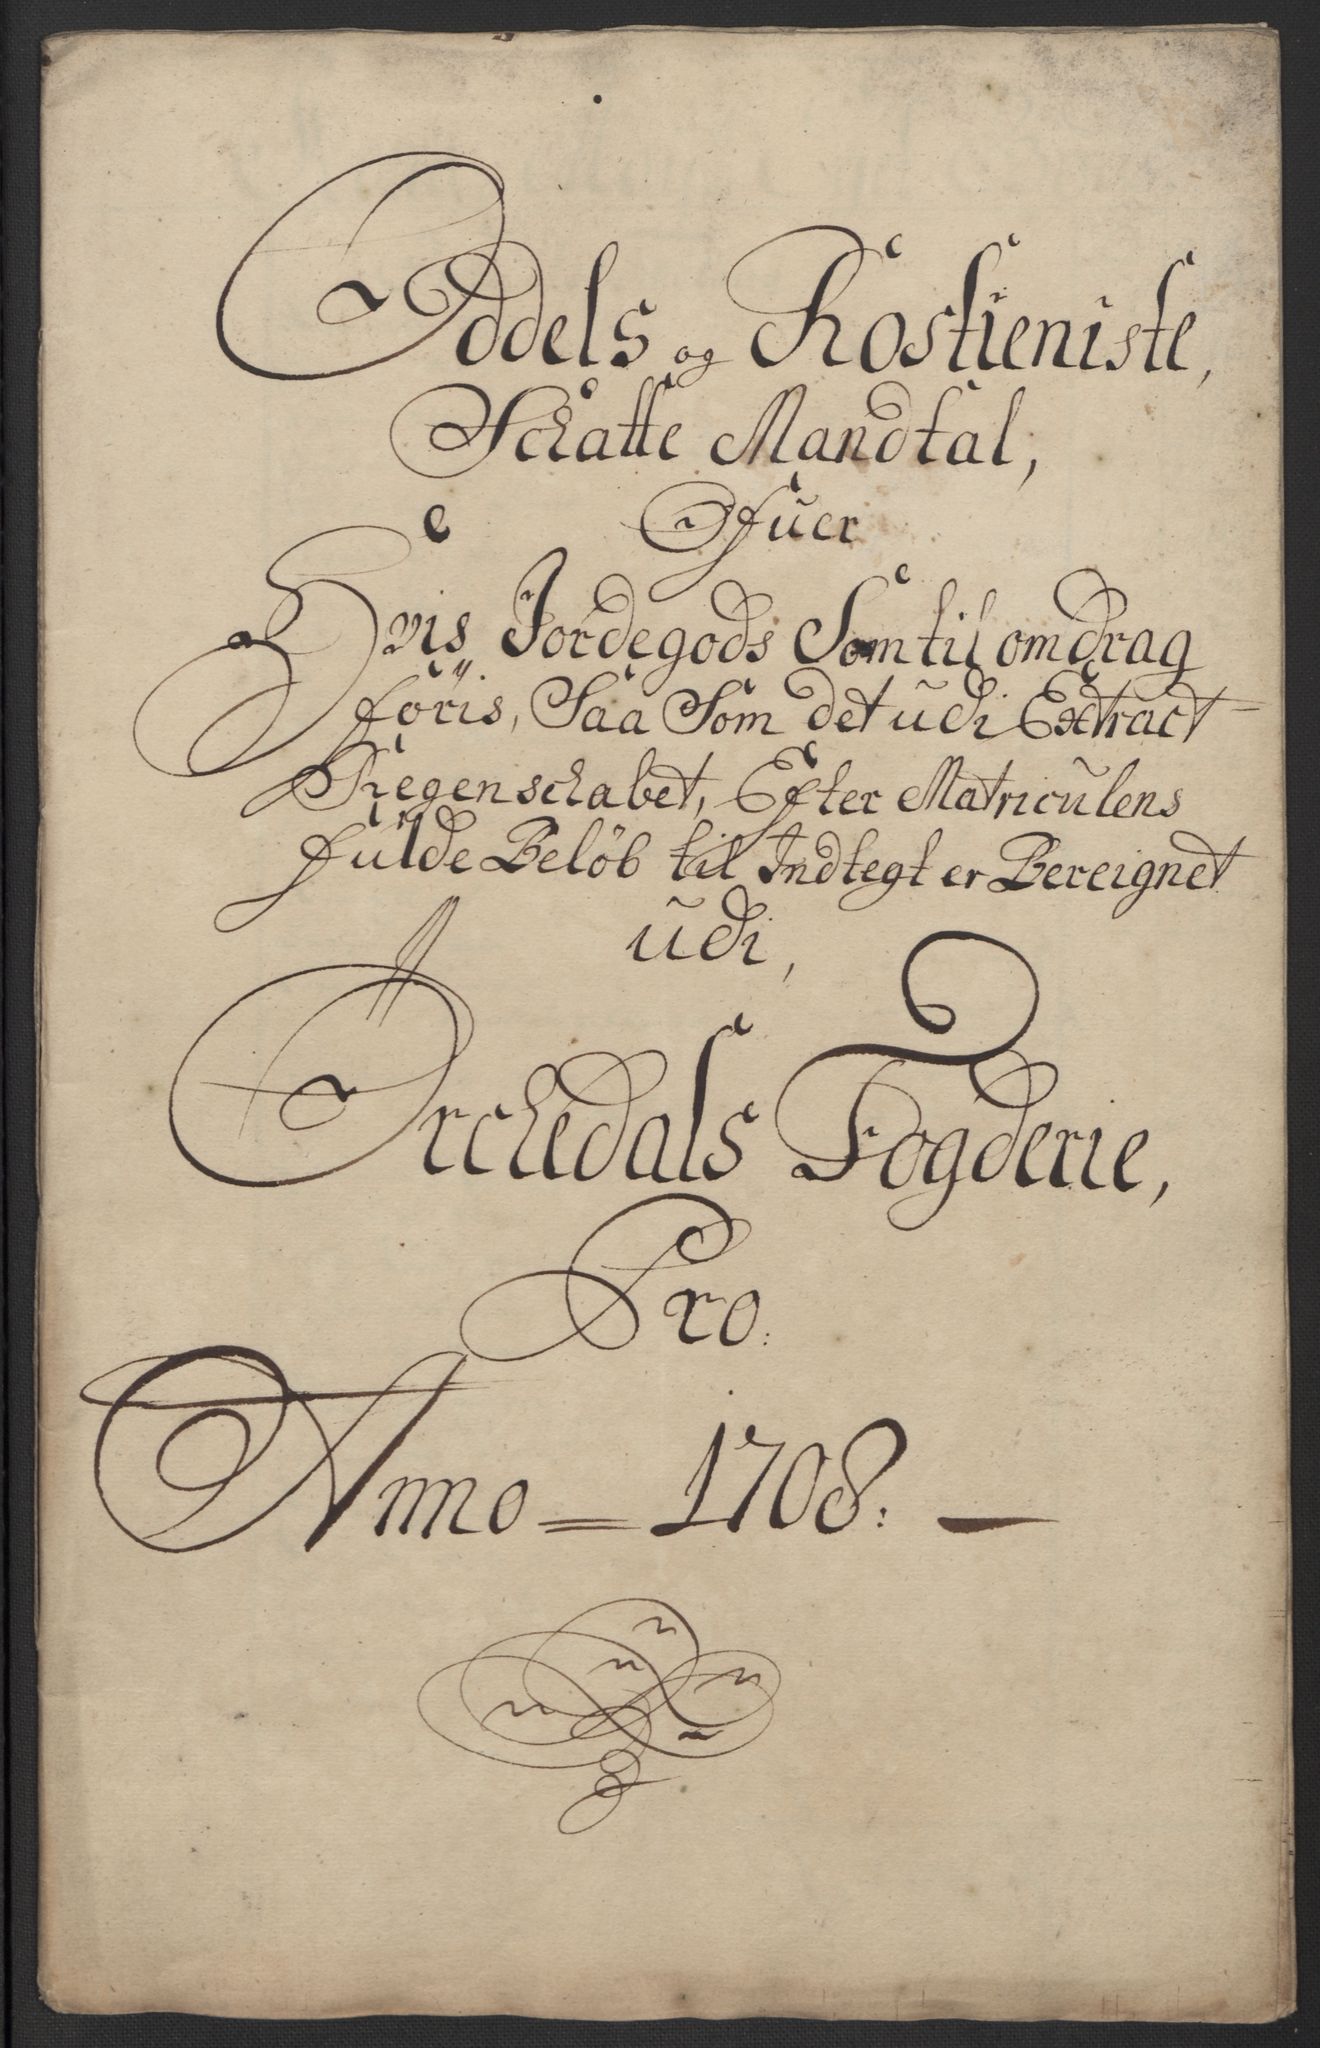 Oddels og Rostieniste,
Schatte Mandtal,
Ofuer
Hvis Jordegods Som til omdrag
föris, Saa Som det udi Extract
Regenschabet, Efter Matriculens
fulde Beløb til Indtegt er Bereignet
udi,
Orchedals Fogderie,
Pro.
Anno = 1708: —